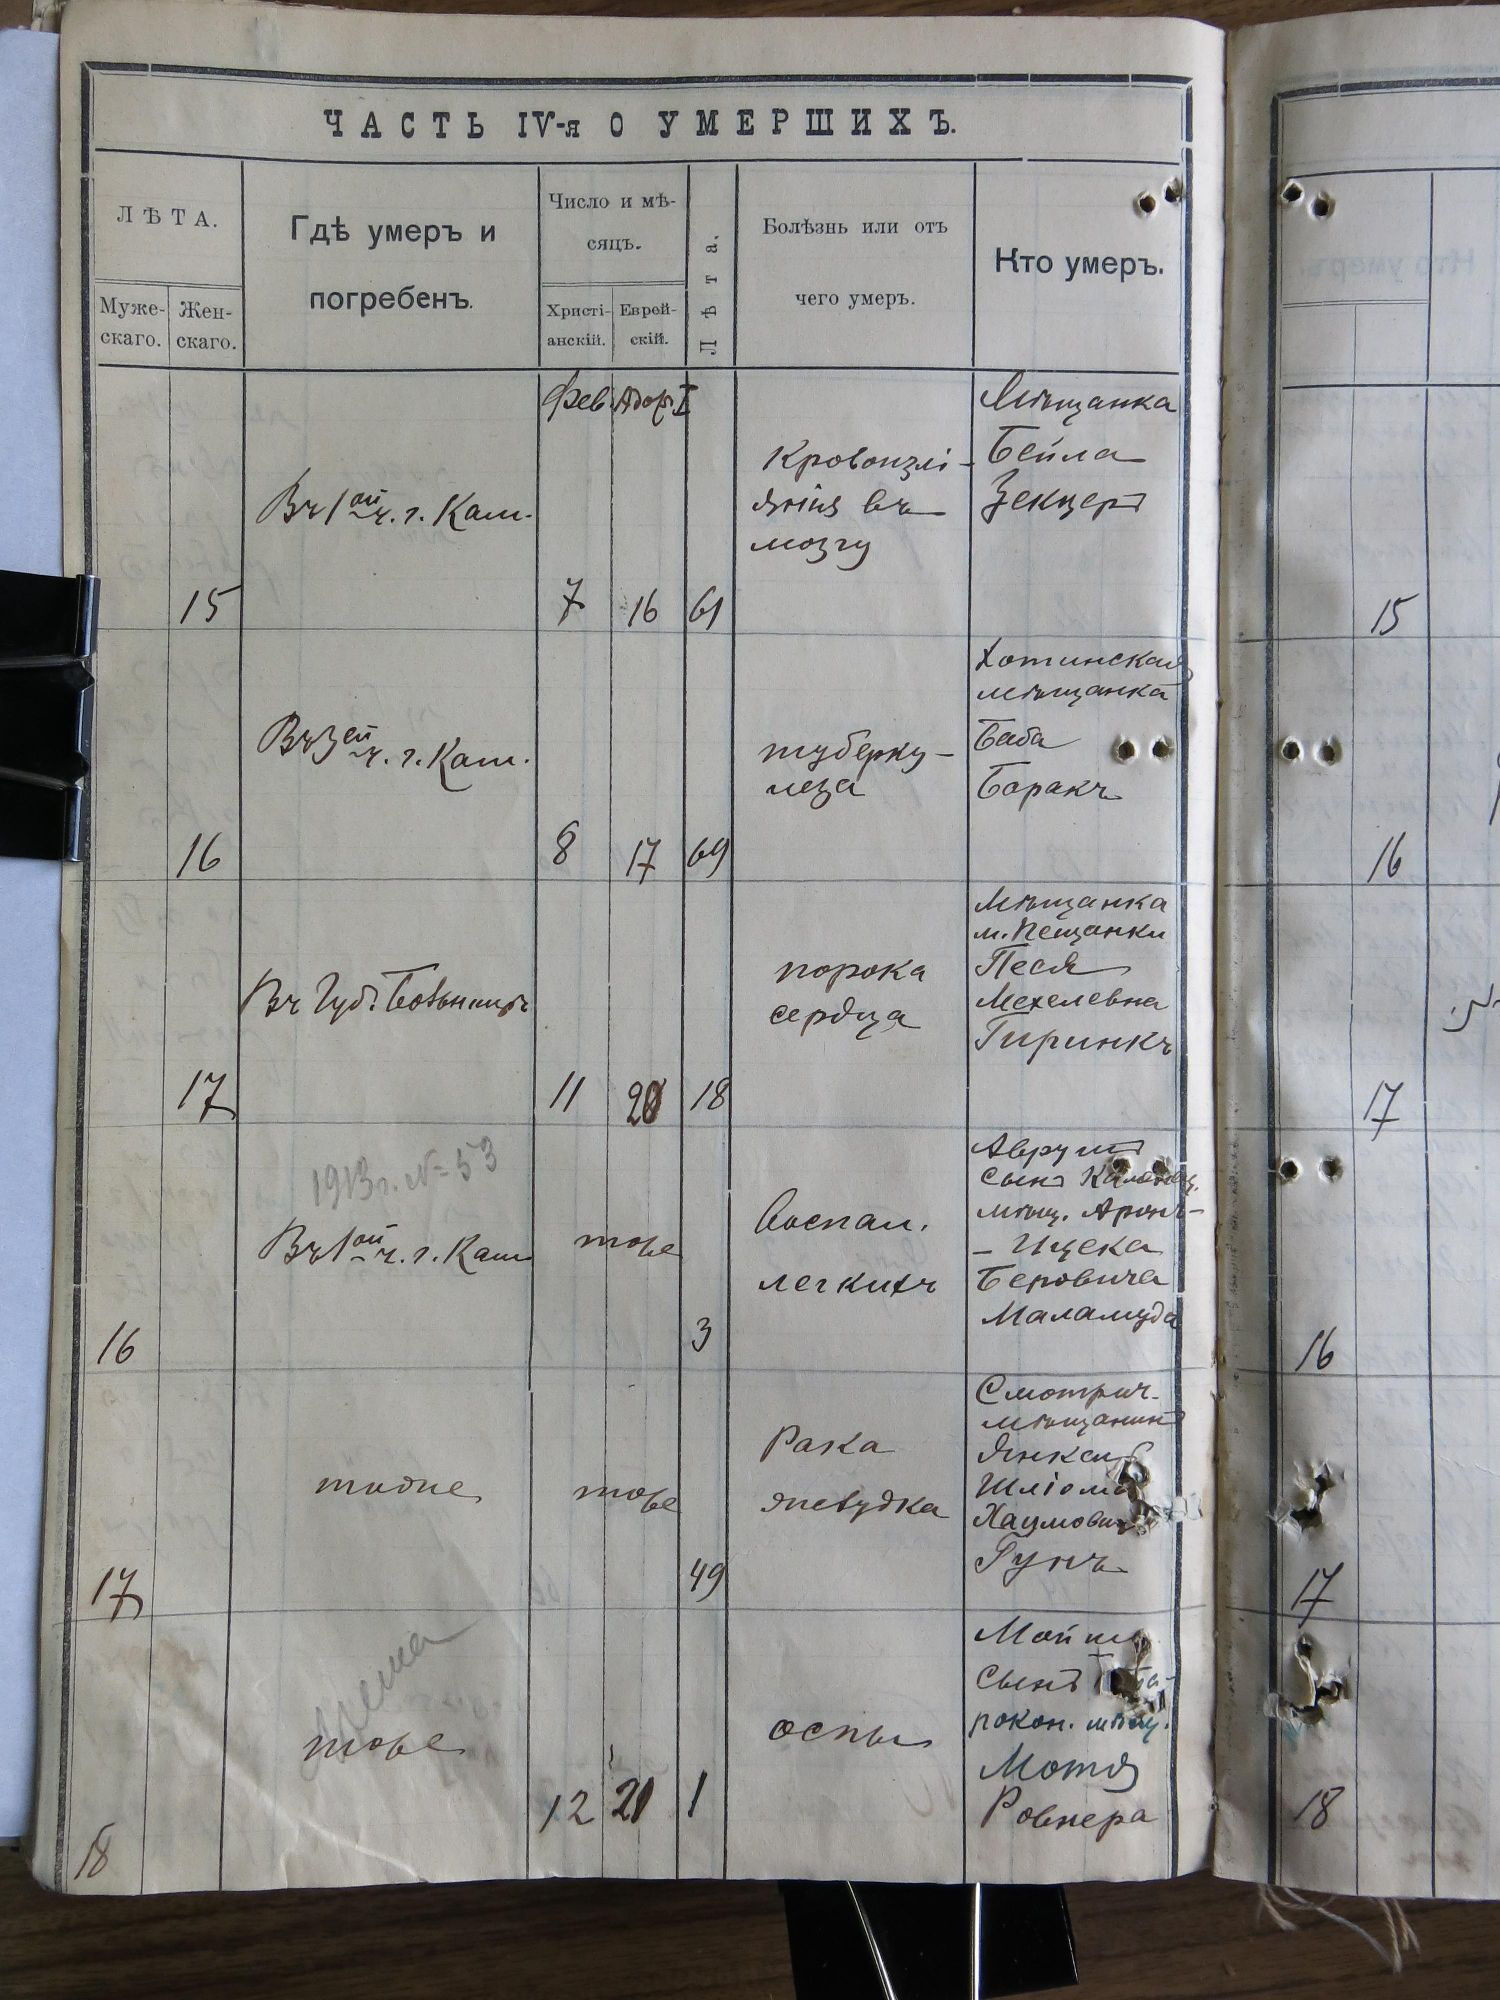 ЧАСТЬ IV-я О УМЕРШИХЪ.
ЛѢТА.
Муже-
скаго.
Жен-
скаго.
Гдѣ умеръ и
погребенъ.
Число и мѣ-
сяцъ.
Христі-
анскій.
Еврей-
скій.
Лѣта.
Болѣзнь или отъ
чего умеръ.
Кто умеръ.
Фев. Адаръ I
15
Въ 1ой ч. г. Кам.
7
16
61
Кровоизлі-
янія въ
мозгу
Мѣщанка
Бейла
Зекцеръ
15
16
Въ 3ей ч. г. Кам.
8
17
69
туберку-
леза
Хотинская
мѣщанка
Баба
Боракъ
16
17
Въ Губ. Больницѣ
11
20
18
порока
сердца
Мѣщанка
м. Пещанки
Песя
Мехелевна
Гиринкъ
17
1913 г. № 53
16
Въ 1ой ч. г. Кам.
тоже
3
Воспал.
легкихъ
Аврумъ
сынъ
мѣщ. Аронъ-
-Ицека
Беровича
Маламуда
16
17
тоже
тоже
49
Рака
желудка
Смотрич.
мѣщанинъ
Янкель
Шліома
Хаимовичъ
Гунъ
17
18
тоже
12
21
1
оспы
сынъ
рокон. мѣщ.
Мотя
Ровнера
18